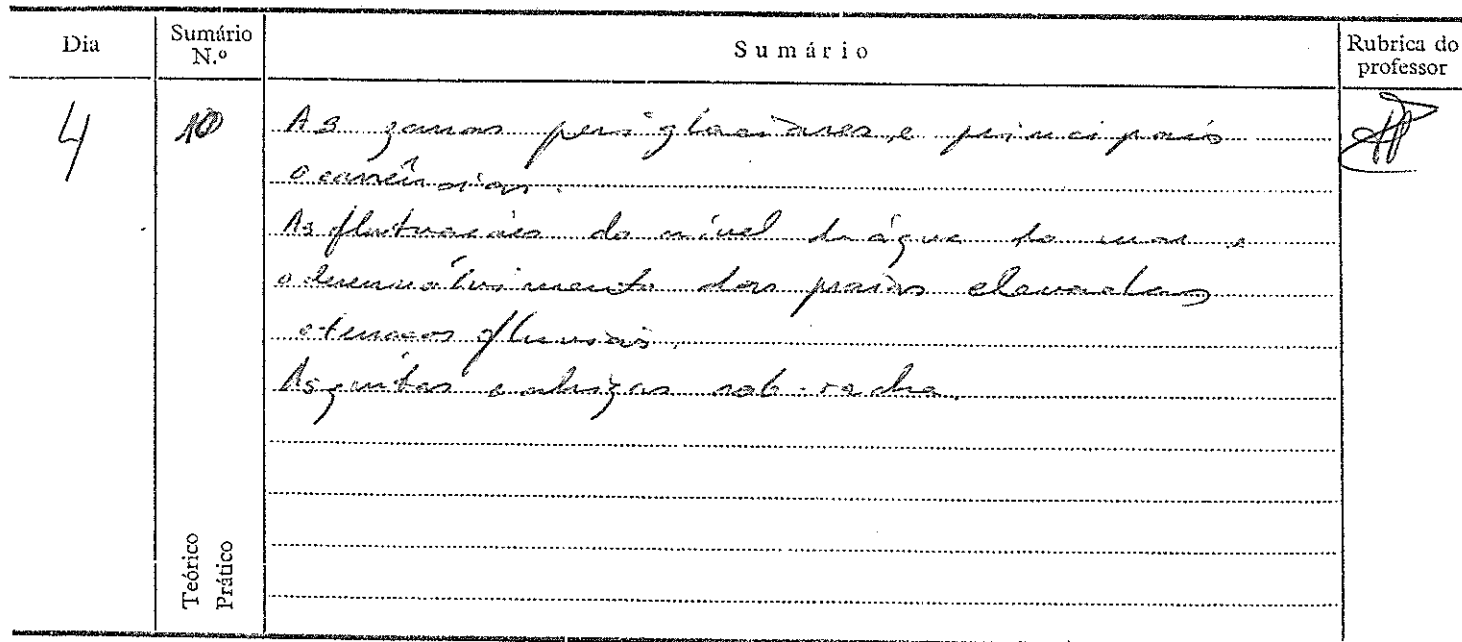 Dia
Sumário
N.º
Sumário
Rubrica do
professor
4
10
As zonas periglaciares, e principais
ocorrências.
As flutuações do nível da água do mar e
o desenvolvimento das praias elevadas
e terraços fluviais.
As grutas e abrigos sob-rocha.
Teórico
Prático